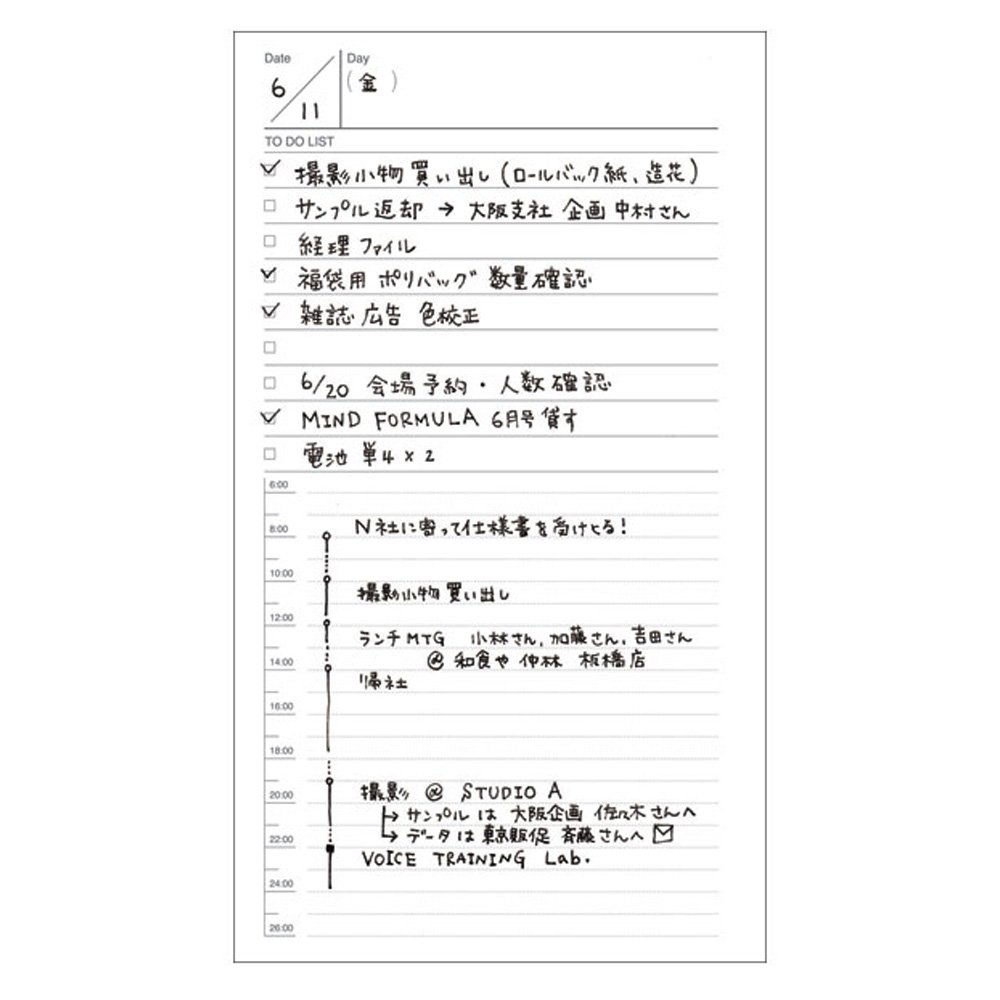 Date Day
6/11 (金)
TO DO LIST
撮影小物 買い出し(ロールバック紙、造花)
サンプル返却 → 大阪支社 企画 中村さん
経理ファイル
福袋用 ポリバッグ 数量確認
雑誌広告 色校正
6/20 会場予約・人数確認
MIND FORMULA 6月号 貸す
電池 単4×2
6:00
8:00 N社に寄って仕様書を受けとる!
10:00 撮影小物 買い出し
12:00 ランチMTG 小林さん、加藤さん、吉田さん
@ 和食や 仲林 板橋店
14:00 帰社
16:00
18:00
撮影 @ STUDIO A
20:00 ↳ サンプルは 大阪企画 佐々木さんへ
↳ データは 東京販促 斉藤さんへ
22:00 VOICE TRAINING Lab.
24:00
26:00